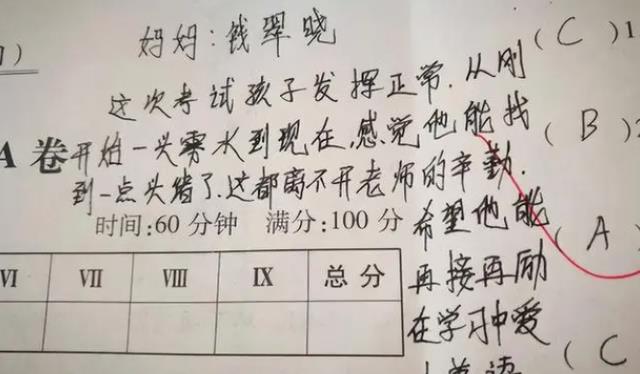 妈妈:钱翠晓
(C)1
)
这次考试孩子发挥正常.从刚
A 卷
开始一头雾水到现在,感觉他能找
(B)
到一点头绪了.这都离不开老师的辛勤.
时间:60 分钟 满分:100 分
希望他能
(A
VI VII VIII IX 总 分
再接再励
在学习中爱
(C